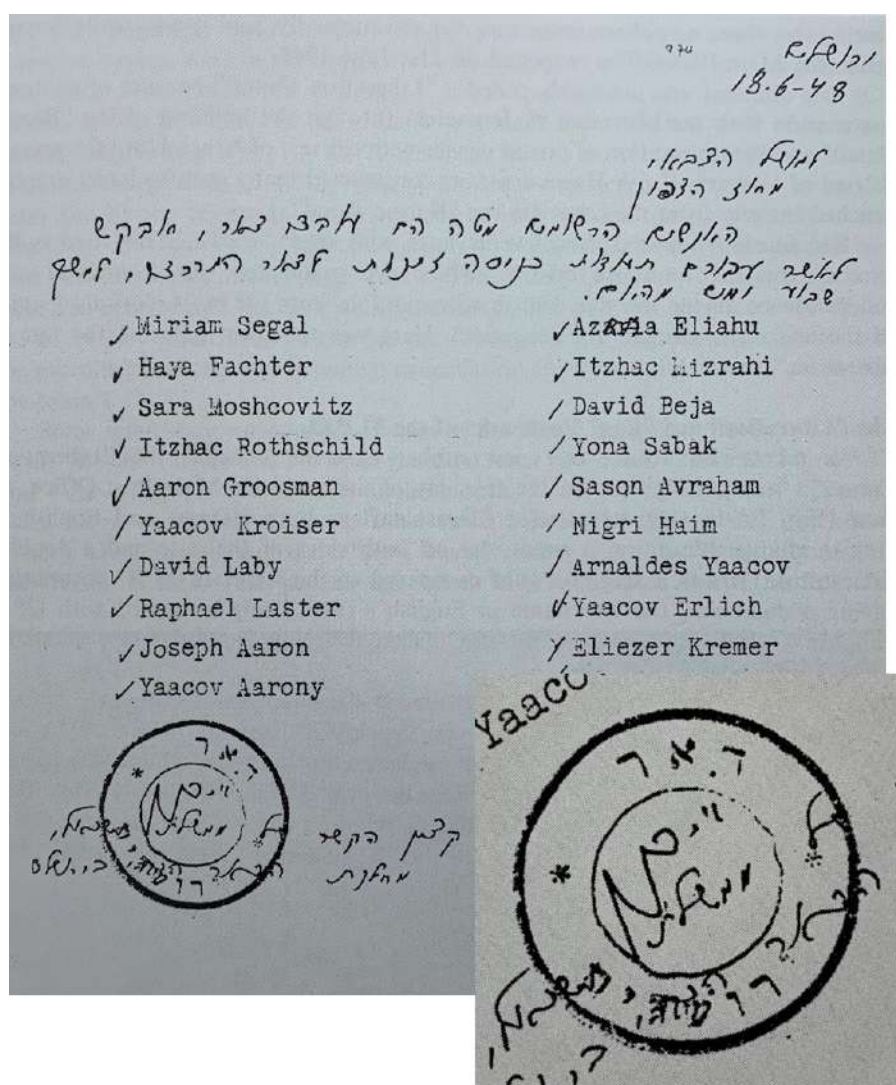 ירושלים
18.6-48
למושל הצבאי
מחוז הצפון
האנשים הרשומים מטה הם עובדי דאר, אבקש
לאשר עבורם תעודות כניסה זמניות לדאר המרכזי, למשך
שבוע ימים מהיום.
Miriam Segal
Haya Fachter
Sara Moshcovitz
Itzhac Rothschild
Aaron Groosman
Yaacov Kroiser
David Laby
Raphael Laster
Joseph Aaron
Yaacov Aarony
Azaria Eliahu
Itzhac Mizrahi
David Beja
Yona Sabak
Sason Avraham
Nigri Haim
Arnaldes Yaacov
Yaacov Erlich
Eliezer Kremer
ד.א.ר
ממשלתי
קצין הקשר
מחלקת
Yaaco
ד.א.ר
ממשלתי